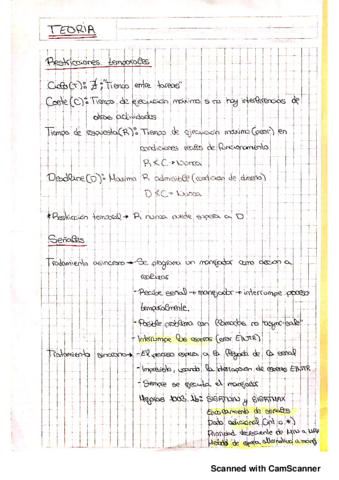 TEORIA
Restricciones temporales
Ciclo(T): "Tiempo entre tareas"
Coste (C): Tiempo de ejecución máximo si no hay interferencias de
otras actividades
Tiempo de respuesta(R): Tiempo de ejecución máximo (peor) en
condiciones reales de funcionamiento
R < C → Nunca
Deadline (D): Máximo R admisible (condición de diseño)
D < C = Nunca
*Restricción temporal → R nunca puede superar a D
Señales
Tratamiento asíncrono → Se programa un manejador como acción a
realizar
- Recibe señal → manejador → interrumpe proceso
temporalmente.
- Posible problema con llamadas no "async-safe"
- Interrumpe las esperas (error EINTR)
Tratamiento síncrono → - El proceso espera a la llegada de la señal
- Imprevisto, usando la interrupción de espera EINTR
- Siempre se ejecuta el manejador
- Mejoras 1003.1b: SIGRTMIN y SIGRTMAX
Encolamiento de señales
Dato adicional (int o *)
Prioridad decreciente de MIN a MAX
Método de espera alternativo a manej
Scanned with CamScanner